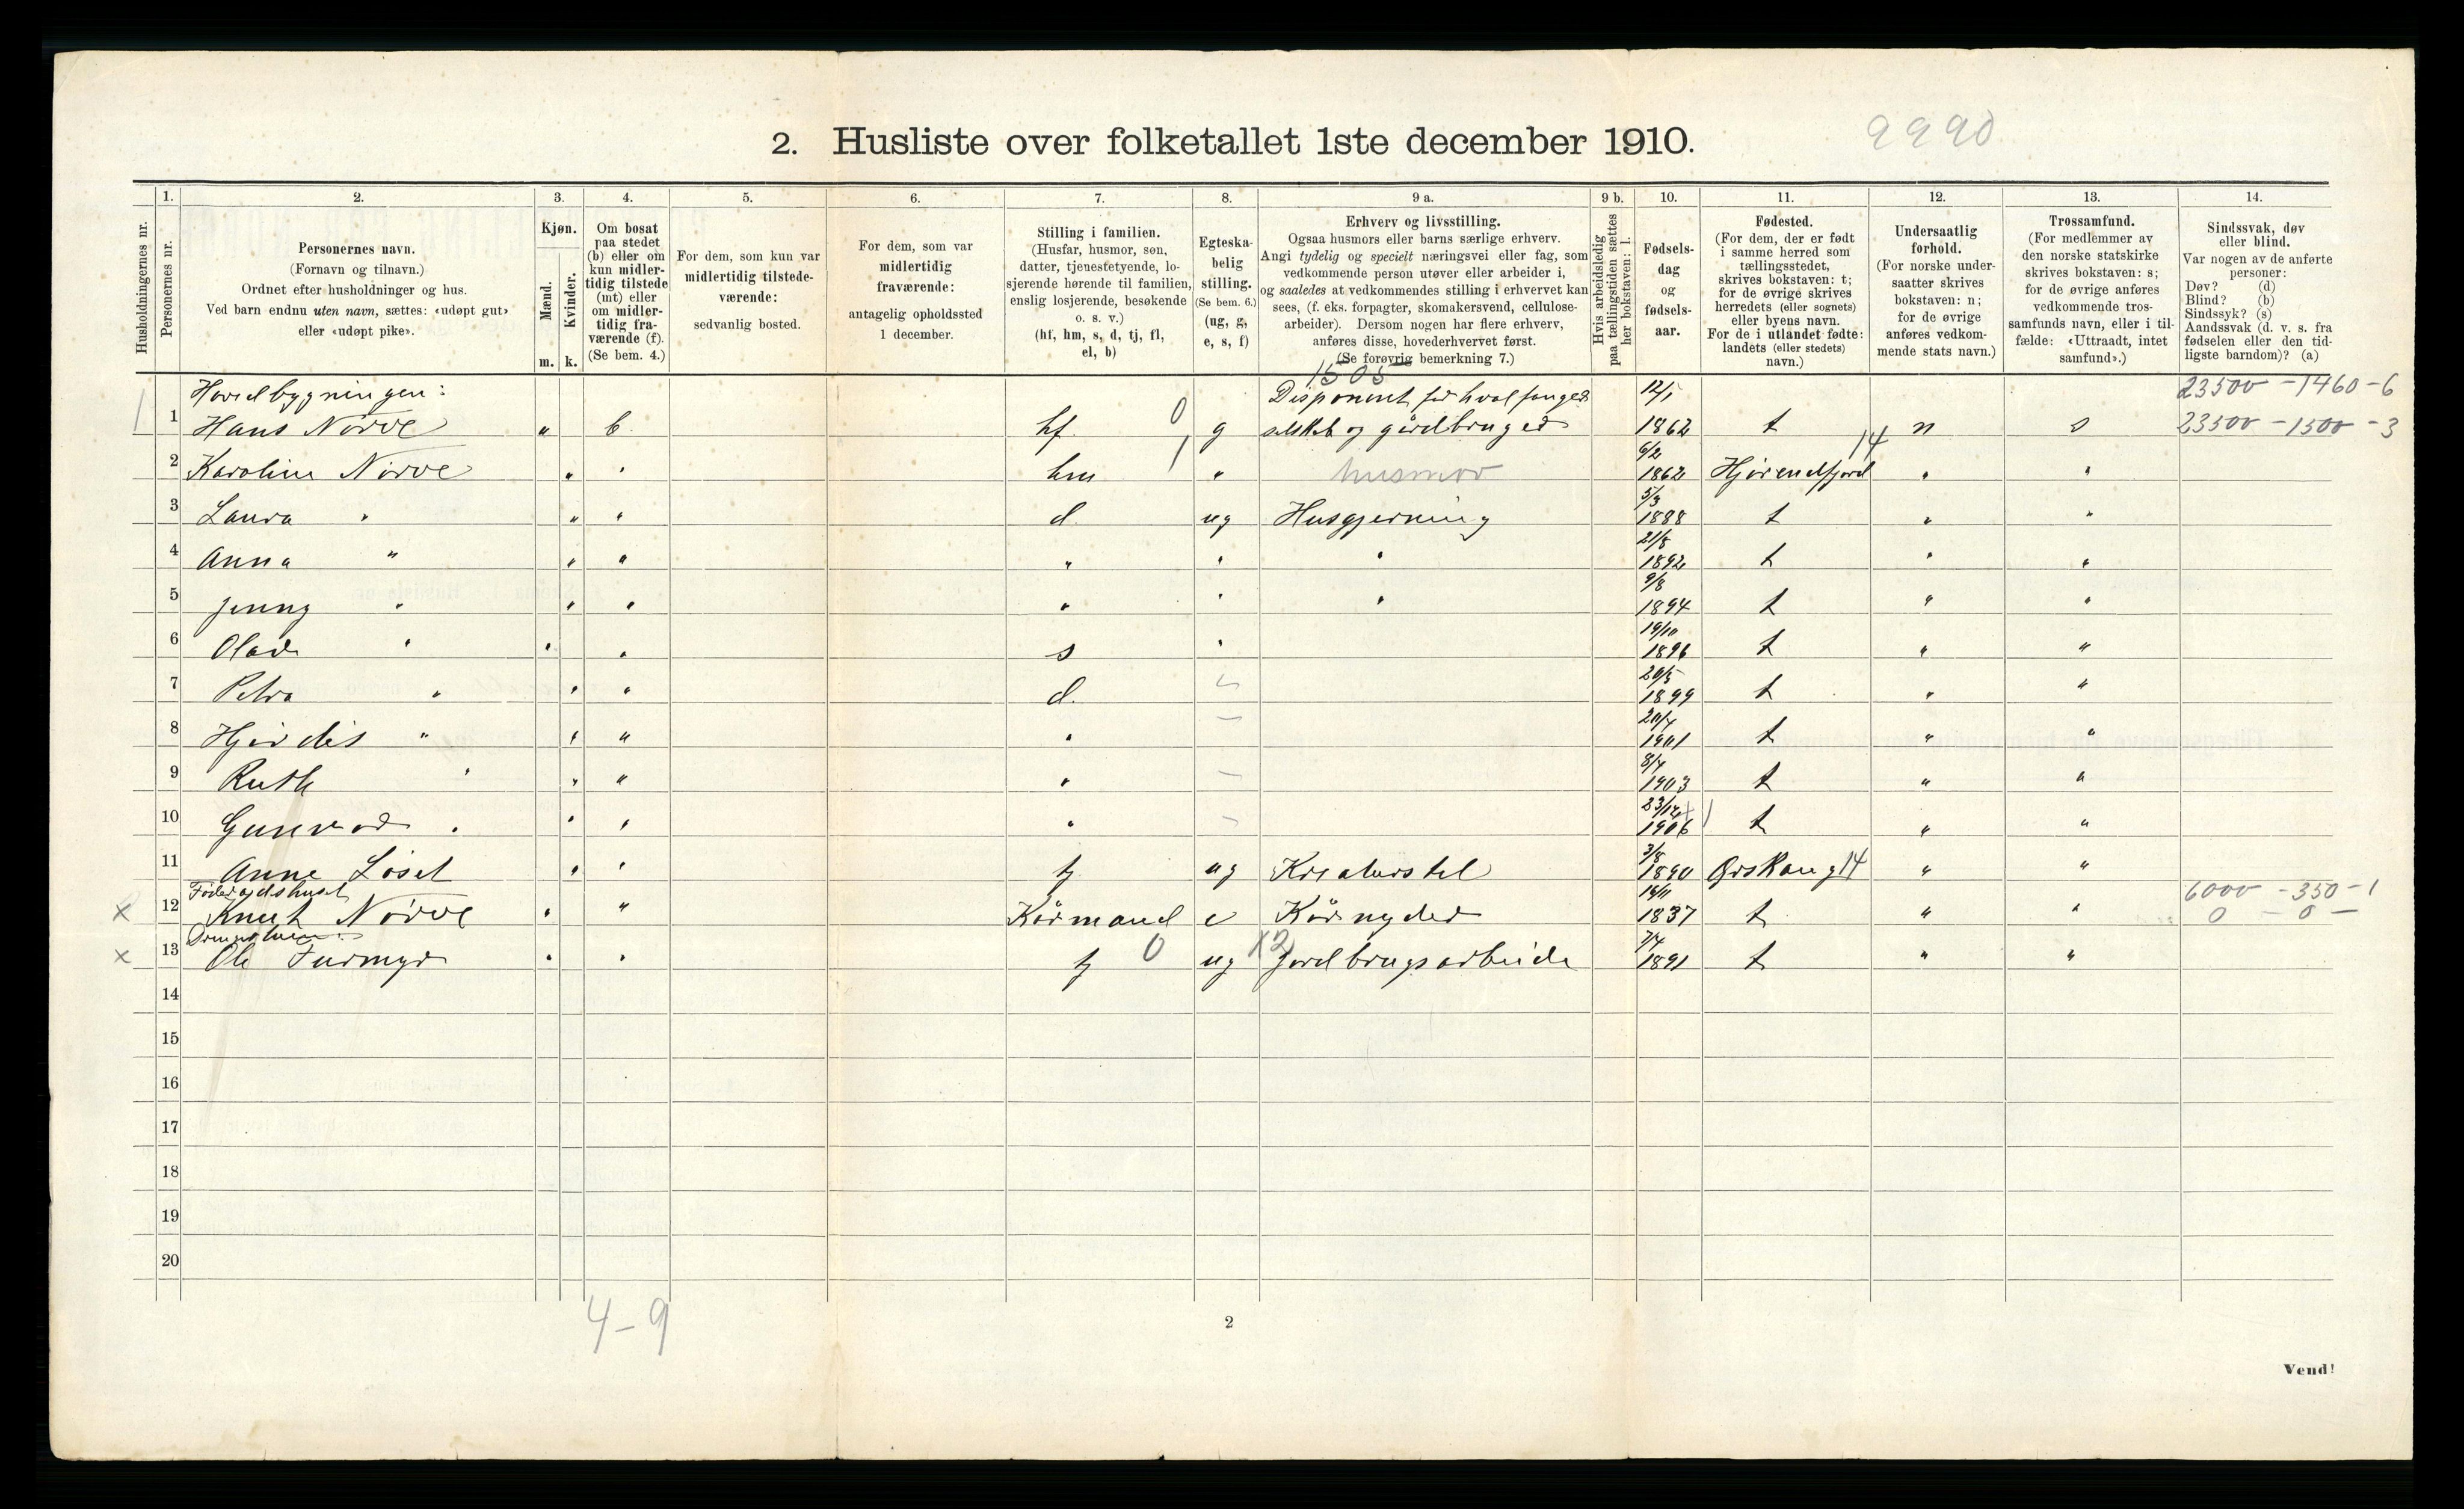 2. Husliste over folketallet 1ste december 1910.
9990
1. 2. 3. 4. 5. 6. 7. 8. 9 a. 9 b. 10. 11. 12. 13. 14.
Husholdningernes nr.
Personernes nr.
Personernes navn.
(Fornavn og tilnavn.)
Ordnet efter husholdninger og hus.
Ved barn endnu uten navn, sættes: «udøpt gut»
eller «udøpt pike».
Kjøn.
Mænd.
Kvinder.
m. k.
Om bosat
paa stedet
(b) eller om
kun midler-
tidig tilstede
(mt) eller
om midler-
tidig fra-
værende (f).
(Se bem. 4.)
For dem, som kun var
midlertidig tilstede-
værende:
sedvanlig bosted.
For dem, som var
midlertidig
fraværende:
antagelig opholdssted
1 december.
Stilling i familien.
(Husfar, husmor, søn,
datter, tjenestetyende, lo-
sjerende hørende til familien,
enslig losjerende, besøkende
o. s. v.)
(hf, hm, s, d, tj, fl,
el, b)
Egteska-
belig
stilling.
(Se bem. 6.)
(ug, g,
e, s, f)
Erhverv og livsstilling.
Ogsaa husmors eller barns særlige erhverv.
Angi tydelig og specielt næringsvei eller fag, som
vedkommende person utøver eller arbeider i,
og saaledes at vedkommendes stilling i erhvervet kan
sees, (f. eks. forpagter, skomakersvend, cellulose-
arbeider). Dersom nogen har flere erhverv,
anføres disse, hovederhvervet først.
(Se forøvrig bemerkning 7.)
Hvis arbeidsledig
paa tællingstiden sættes
her bokstaven: l.
Fødsels-
dag
og
fødsels-
aar.
Fødested.
(For dem, der er født
i samme herred som
tællingsstedet,
skrives bokstaven: t;
for de øvrige skrives
herredets (eller sognets)
eller byens navn.
For de i utlandet fødte:
landets (eller stedets)
navn.)
Undersaatlig
forhold.
(For norske under-
saatter skrives
bokstaven: n;
for de øvrige
anføres vedkom-
mende stats navn.)
Trossamfund.
(For medlemmer av
den norske statskirke
skrives bokstaven: s;
for de øvrige anføres
vedkommende tros-
samfunds navn, eller i til-
fælde: «Uttraadt, intet
samfund».)
Sindssvak, døv
eller blind.
Var nogen av de anførte
personer:
Døv? (d)
Blind? (b)
Sindssyk? (s)
Aandssvak (d. v. s. fra
fødselen eller den tid-
ligste barndom)? (a)
1505
Hovedbygningen: Disponent for hvalfanger 12/1 23500 - 1460 - 6
1 1 Hans Nørve " b. hf. 0 g selskab og gårdbruger 1862 t n s 23500 - 1500 - 3
6/2
2 Karoline Nørve " " hm 1 " husmor 1862 Hjørendfjord 14 " "
5/3
3 Laura " " " d. ug Husgjerning 1888 t " "
21/8
4 Anna " " " " " " 1892 t " "
9/8
5 Jenny " " " " " " 1894 t " "
19/10
6 Olav " " " s " 1896 t " "
20/5
7 Petra " " " d. 1899 t " "
20/4
8 Hjørdis " " " " – 1901 t " "
8/4
9 Ruth " " " " – 1903 t " "
23/12
10 Gunvor " " " " – 1906 t " "
3/8
11 Anne Løset " " tj ug Kreaturstel 1890 Ørskaug 14 " "
Føderaadshuset 16/11 6000 - 350 - 1
x 12 Knut Nørve " " Kårmand e Kårnyder 1837 t " " 0 - 0 -
7/4
x 13 Ole Furmyr " " tj 0 ug x2 Jordbrugsarbeide 1891 t " "
14
15
16
17
18
19
20
4 - 9
2
Vend!